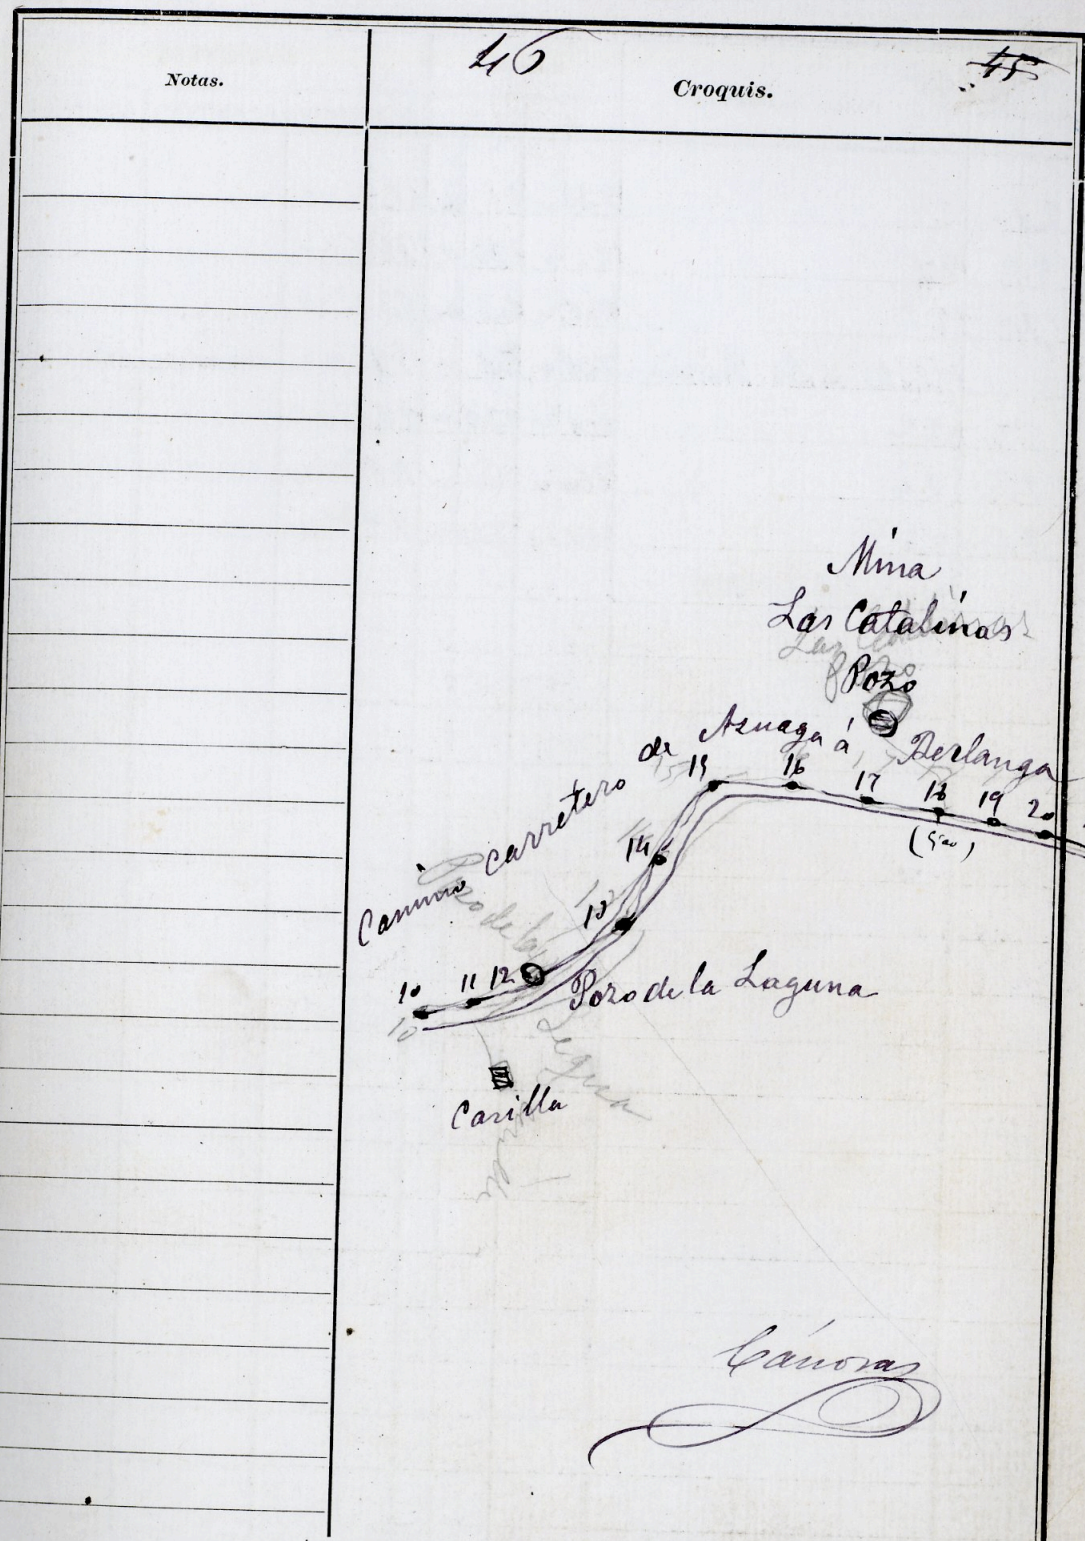 Notas.
46
Croquis.
45
Mina
Las Catalinas
Pozo
Camino carretero de Azuaga á Berlanga
15
16
17
18
19
20
14
13
10
11
12
Pozo de la Laguna
10
Casilla
Cánovas